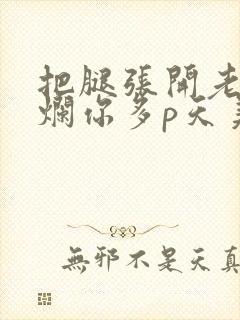 把腿張開老
爛你多p天
無邪不是天真